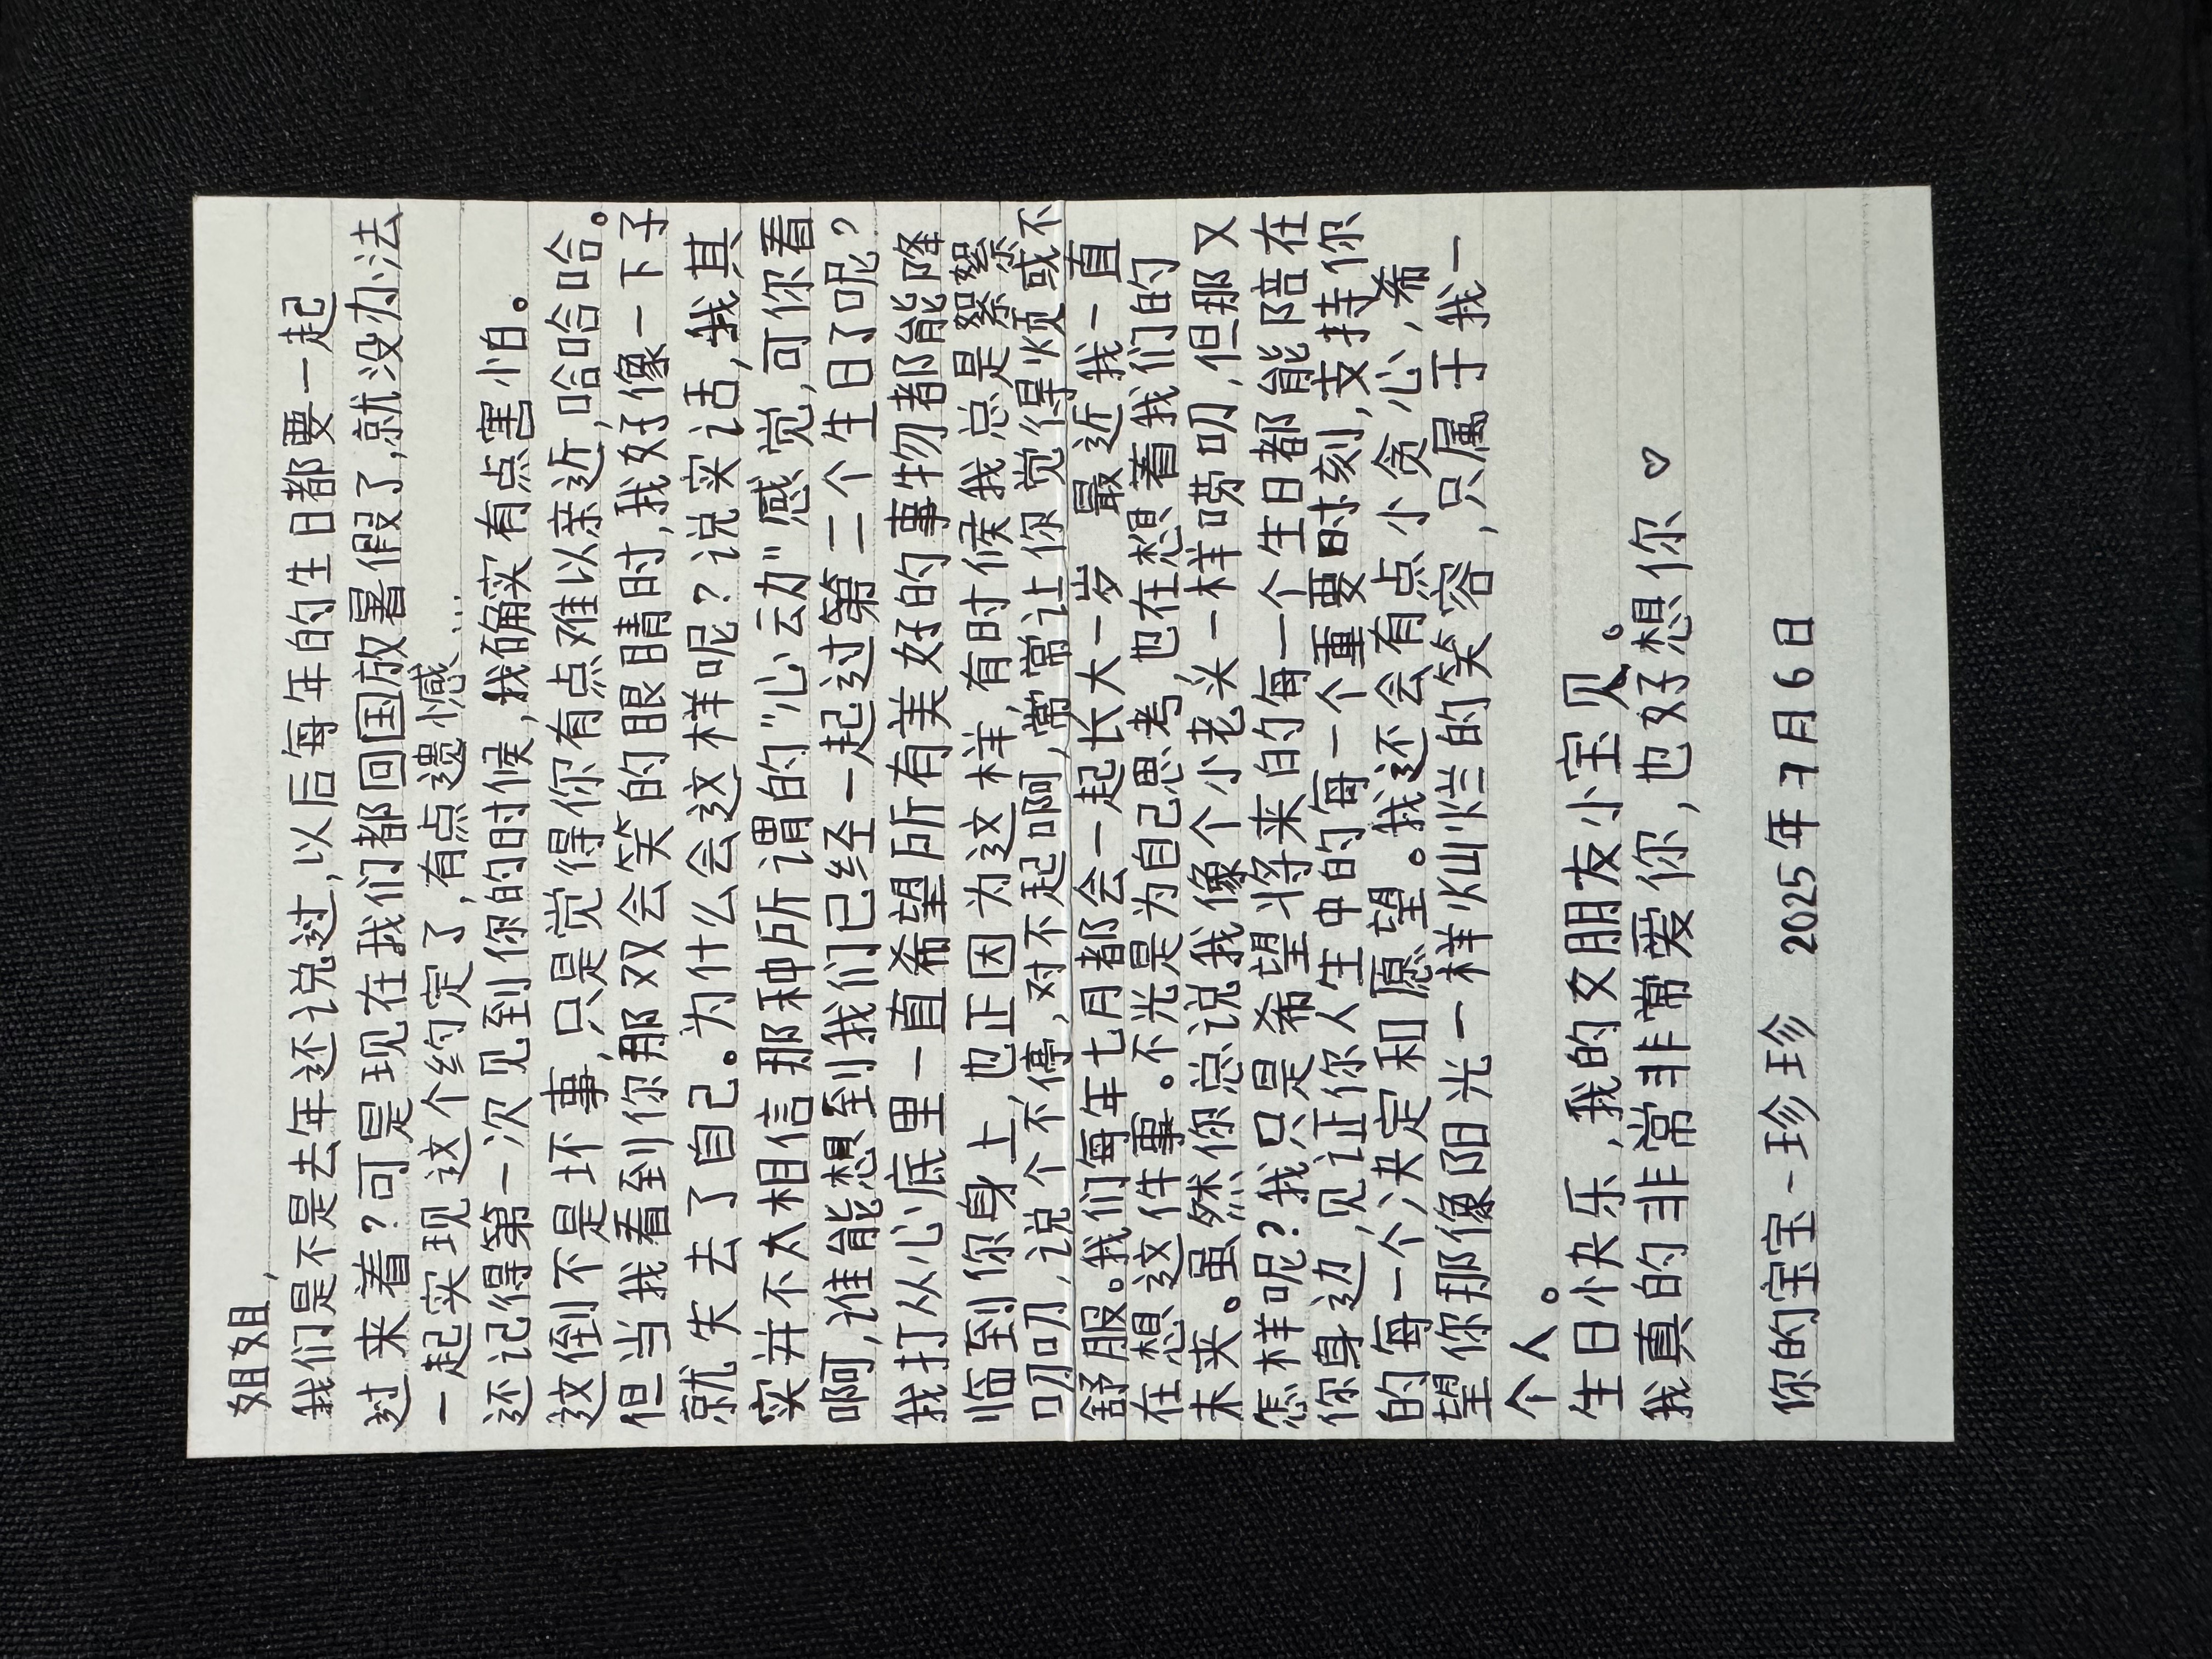 姐姐,
我们是不是去年还说过,以后每年的生日都要一起
过来着?可是现在我们都回国放暑假了,就没办法
一起实现这个约定了,有点遗憾...
还记得第一次见到你的时候,我确实有点害怕。
这倒不是坏事,只是觉得你有点难以亲近,哈哈哈。
但当我看到你那双会笑的眼睛时,我好像一下子
就失去了自己。为什么会这样呢?说实话,我其
实并不太相信那种所谓的"心动"感觉,可你看
啊,谁能想到我们已经一起过第二个生日了呢?
我打从心底里一直希望所有美好的事物都能降
临到你身上,也正因为这样,有时候我总是絮絮
叨叨,说个不停,对不起啊,常常让你觉得烦或不
舒服。我们每年七月都会一起长大一岁 最近我一直
在想这件事。不光是为自己思考,也在想着我们的
未来。虽然你总说我像个小老头一样唠叨,但那又
怎样呢?我只是希望将来的每一个生日都能陪在
你身边,见证你人生中的每一个重要时刻,支持你
的每一个决定和愿望。我还会有点小贪心,希
望你那像阳光一样灿烂的笑容,只属于我一
个人。
生日快乐,我的女朋友小宝贝。
我真的非常非常爱你,也好想你♡
你的宝宝-珍珍 2025年7月6日